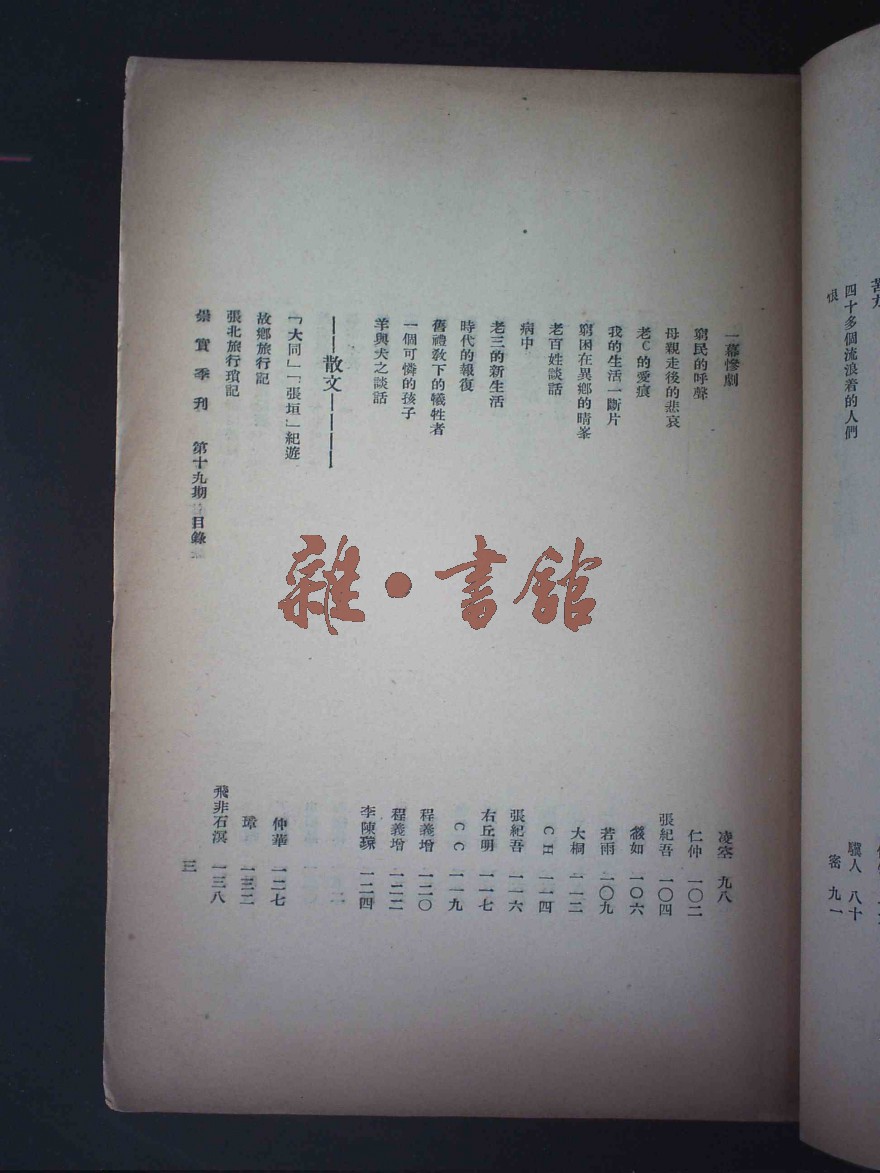 四十多個流浪着的人們 驥人 八十
張 密 九一
一幕慘劇 凌空 九八
窮民的呼聲 仁仲 一〇二
母親走後的悲哀 張紀吾 一〇四
老C的愛痕 如 一〇六
我的生活一斷片 若雨 一〇九
窮困在異鄉的晴峯 大桐 一一二
老百姓談話 CH 一一四
病中 張紀吾 一一六
老三的新生活 右丘明 一一七
時代的報復 CC 一一九
舊禮教下的犧牲者 程義增 一二〇
一個可憐的孩子 程義增 一二二
羊與犬之談話 李陳 一二四
——散文————
「大同」「張垣」紀遊 仲華 一二七
故鄉旅行記 璋 一三二
張北旅行瑣記 飛非石溟 一三八
崇實季刊 第十九期 目錄 三
雜·書館